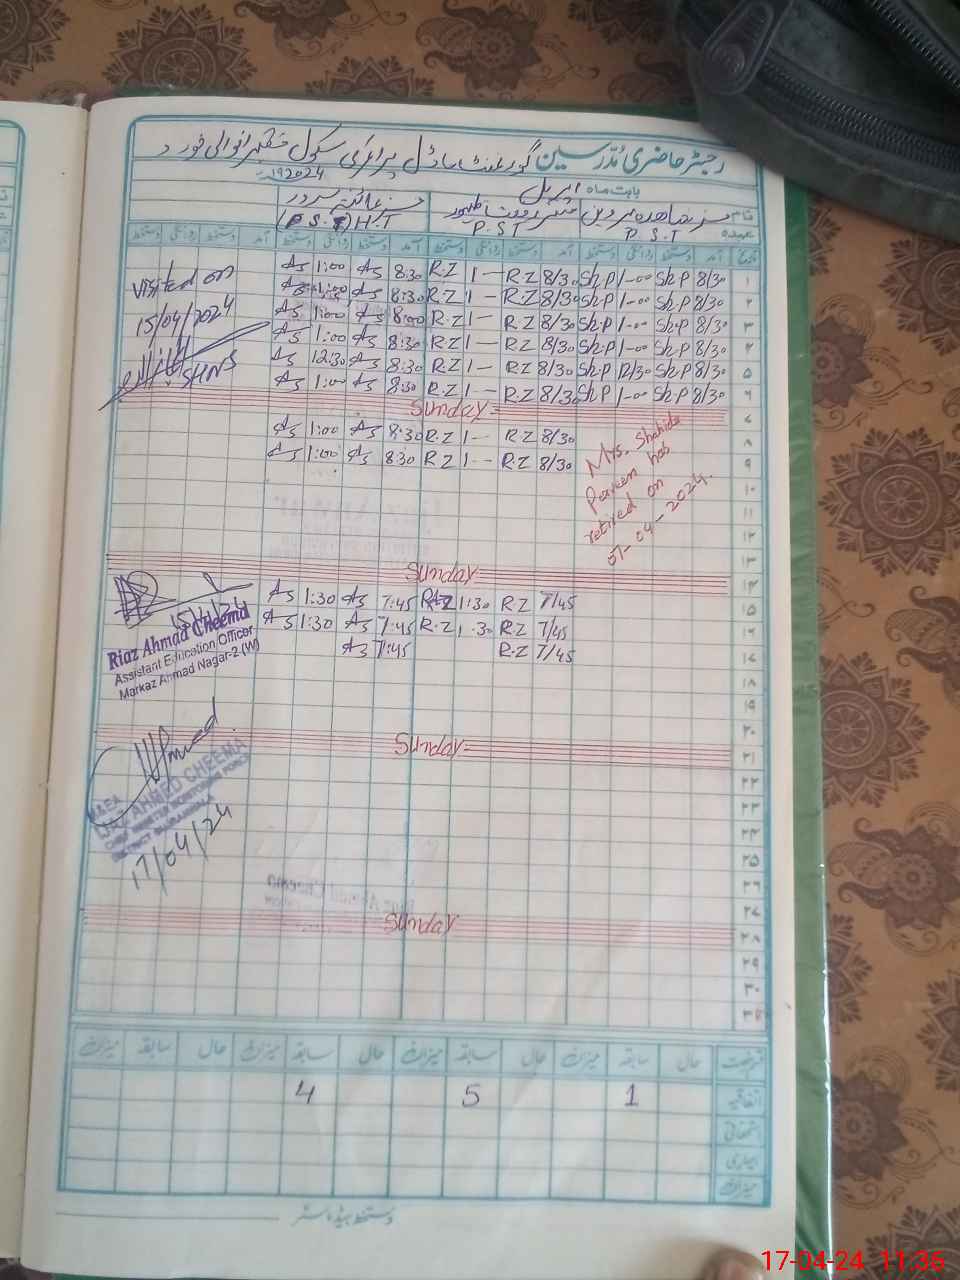 رجسٹر حاضری مدرسین گورنمنٹ ماڈل پرائمری سکول
بابت ماہ اپریل 2024
نام مسز شاہدہ پروین مسز
عہدہ P.S.T P.S.T (P.S.T) H/T
تاریخ آمد دستخط روانگی دستخط آمد دستخط روانگی دستخط آمد دستخط روانگی دستخط آمد دستخط روانگی دستخط
۱ 8/30 Sh.P 1-00 Sh.P 8/30 R.Z 1 — R.Z 8:30 AS 1:00 AS
۲ 8/30 Sh.P 1-00 Sh.P 8/30 R.Z 1 — R.Z 8:30 AS 1:00 AS
۳ 8/30 Sh.P 1-00 Sh.P 8/30 R.Z 1 — R.Z 8:00 AS 1:00 AS
۴ 8/30 Sh.P 1-00 Sh.P 8/30 R.Z 1 — R.Z 8:30 AS 1:00 AS
۵ 8/30 Sh.P 12/30 Sh.P 8/30 R.Z 1 — R.Z 8:30 AS 12:30 AS
۶ 8/30 Sh.P 1-00 Sh.P 8/30 R.Z 1 — R.Z 8:30 AS 1:00 AS
visited on
15/04/2024
۷ Sunday
۸ 8/30 R.Z 1 — R.Z 8:30 AS 1:00 AS
۹ 8/30 R.Z 1 — R.Z 8:30 AS 1:00 AS
Mrs. Shahida
Parveen has
retired on
07-04-2024.
۱۰
۱۱
۱۲
۱۳
۱۴ Sunday
۱۵ 7/45 R.Z 1:30 R.Z 7:45 AS 1:30 AS
۱۶ 7/45 R.Z 1:30 R.Z 7:45 AS 1:30 AS
۱۷ 7/45 R.Z 7:45 AS
15/4/24
Riaz Ahmad Cheema
Assistant Education Officer
Markaz Ahmad Nagar-2 (W)
۱۸
۱۹
۲۰
۲۱ Sunday
AHMED CHEEMA
17/04/24
۲۲
۲۳
۲۴
۲۵
۲۶
۲۷
۲۸ Sunday
۲۹
۳۰
۳۱
رخصت حال سابقہ میزان حال سابقہ میزان حال سابقہ میزان حال سابقہ میزان
اتفاقیہ 1 5 4
استحقاقی
بیماری
میزان
دستخط ہیڈ ماسٹر
17-04-24 11:36